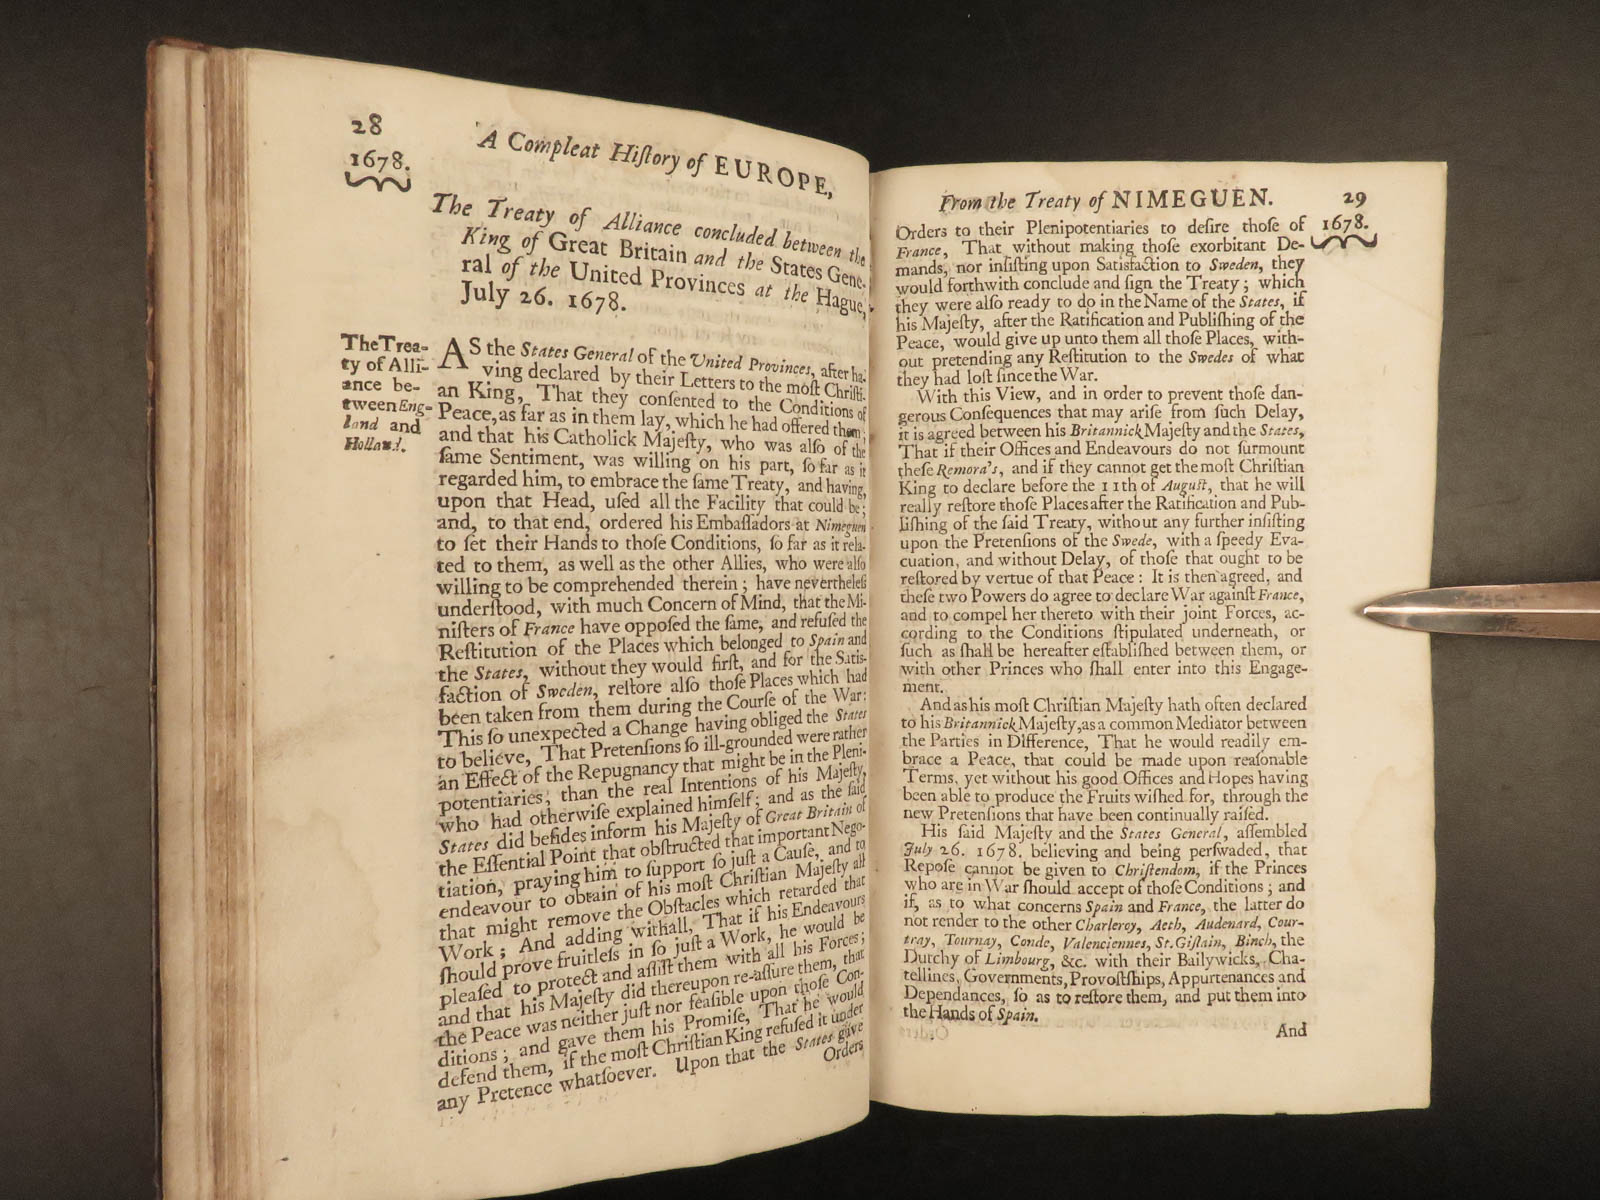 28
1678.
A Compleat Hiſtory of EUROPE,
The Treaty of Alliance concluded between the
King of Great Britain and the States Gene-
ral of the United Provinces at the Hague,
July 26. 1678.
The Trea-
ty of Alli-
ance be-
tween Eng-
land and
Holland.
AS the States General of the United Provinces, after ha-
ving declared by their Letters to the moſt Chriſti-
an King, That they conſented to the Conditions of
Peace, as far as in them lay, which he had offered them;
and that his Catholick Majeſty, who was alſo of the
ſame Sentiment, was willing on his part, ſo far as it
regarded him, to embrace the ſame Treaty, and having,
upon that Head, uſed all the Facility that could be;
and, to that end, ordered his Embaſſadors at Nimeguen
to ſet their Hands to thoſe Conditions, ſo far as it rela-
ted to them, as well as the other Allies, who were alſo
willing to be comprehended therein; have nevertheleſs
underſtood, with much Concern of Mind, that the Mi-
niſters of France have oppoſed the ſame, and refuſed the
Reſtitution of the Places which belonged to Spain and
the States, without they would firſt, and for the Satis-
faction of Sweden, reſtore alſo thoſe Places which had
been taken from them during the Courſe of the War:
This ſo unexpected a Change having obliged the States
to believe, That Pretenſions ſo ill-grounded were rather
an Effect of the Repugnancy that might be in the Pleni-
potentiaries, than the real Intentions of his Majeſty,
who had otherwiſe explained himſelf; and as the ſaid
States did beſides inform his Majeſty of Great Britain of
the Eſſential Point that obſtructed that important Nego-
tiation, praying him to ſupport ſo juſt a Cauſe, and to
endeavour to obtain of his moſt Chriſtian Majeſty all
that might remove the Obſtacles which retarded that
Work; And adding withall, That if his Endeavours
ſhould prove fruitleſs in ſo juſt a Work, he would be
pleaſed to protect and aſſiſt them with all his Forces;
and that his Majeſty did thereupon re-aſſure them, that
the Peace was neither juſt nor feaſible upon thoſe Con-
ditions; and gave them his Promiſe, That he would
defend them, if the moſt Chriſtian King refuſed it under
any Pretence whatſoever. Upon that the States give
Orders
From the Treaty of NIMEGUEN.
29
1678.
Orders to their Plenipotentiaries to deſire thoſe of
France, That without making thoſe exorbitant De-
mands, nor inſiſting upon Satisfaction to Sweden, they
would forthwith conclude and ſign the Treaty; which
they were alſo ready to do in the Name of the States, if
his Majeſty, after the Ratification and Publiſhing of the
Peace, would give up unto them all thoſe Places, with-
out pretending any Reſtitution to the Swedes of what
they had loſt ſince the War.
With this View, and in order to prevent thoſe dan-
gerous Conſequences that may ariſe from ſuch Delay,
it is agreed between his Britannick Majeſty and the States,
That if their Offices and Endeavours do not ſurmount
theſe Remora's, and if they cannot get the moſt Chriſtian
King to declare before the 11th of Auguſt, that he will
really reſtore thoſe Places after the Ratification and Pub-
liſhing of the ſaid Treaty, without any further inſiſting
upon the Pretenſions of the Swede, with a ſpeedy Eva-
cuation, and without Delay, of thoſe that ought to be
reſtored by vertue of that Peace: It is then agreed, and
theſe two Powers do agree to declare War againſt France,
and to compel her thereto with their joint Forces, ac-
cording to the Conditions ſtipulated underneath, or
ſuch as ſhall be hereafter eſtabliſhed between them, or
with other Princes who ſhall enter into this Engage-
ment.
And as his moſt Chriſtian Majeſty hath often declared
to his Britannick Majeſty, as a common Mediator between
the Parties in Difference, That he would readily em-
brace a Peace, that could be made upon reaſonable
Terms, yet without his good Offices and Hopes having
been able to produce the Fruits wiſhed for, through the
new Pretenſions that have been continually raiſed.
His ſaid Majeſty and the States General, aſſembled
July 26. 1678. believing and being perſwaded, that
Repoſe cannot be given to Chriſtendom, if the Princes
who are in War ſhould accept of thoſe Conditions; and
if, as to what concerns Spain and France, the latter do
not render to the other Charleroy, Aeth, Audenard, Cour-
tray, Tournay, Conde, Valenciennes, St. Giſlain, Binch, the
Dutchy of Limbourg, &c. with their Bailywicks, Cha-
tellines, Governments, Provoſtſhips, Appurtenances and
Dependances, ſo as to reſtore them, and put them into
the Hands of Spain.
And